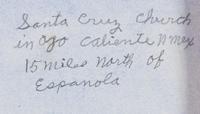 Santa Cruz Church
in ojo caliente N mex
15 miles north of
Espanola